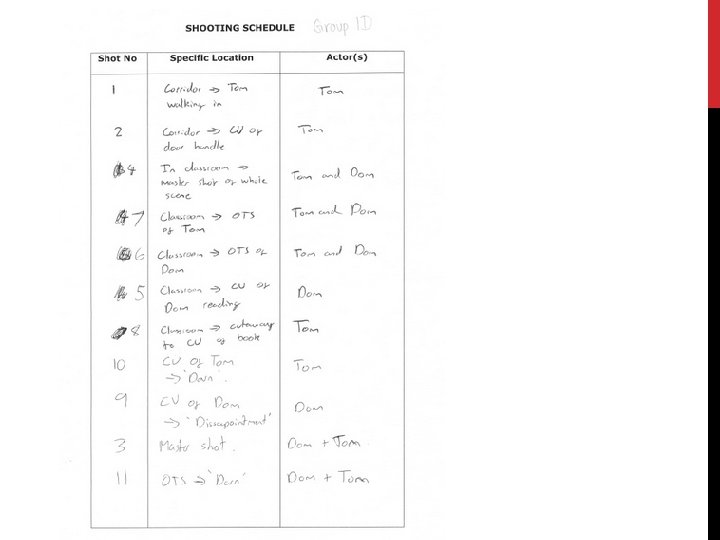 SHOOTING SCHEDULE Group 1D
Shot No Specific Location Actor(s)
1 Corridor → Tom Tom
walking in
2 Corridor → CU of Tom
door handle
4 In classroom → Tom and Dom
Master shot of whole
scene
7 Classroom → OTS Tom and Dom
of Tom
6 Classroom → OTS of Tom and Dom
Dom
5 Classroom → CU of Dom
Dom reading
8 Classroom → cutaway Tom
to CU of book
10 CU of Tom Tom
→ 'Darn'.
9 CU of Dom Dom
→ 'Dissapointment'
3 Master shot. Dom + Tom.
11 OTS → 'Darn' Dom + Tom